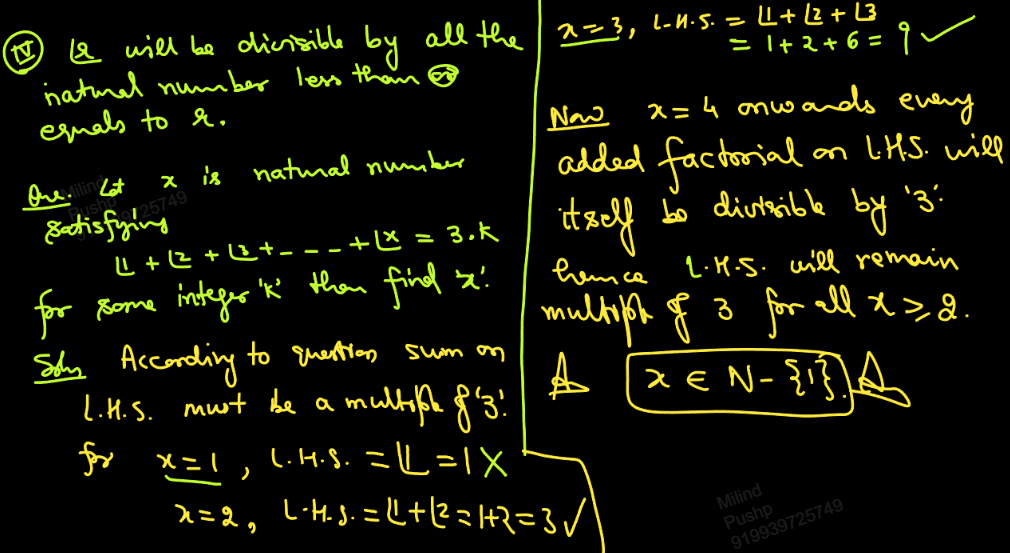 (IV) ⌊r will be divisible by all the
natural number less than or
equals to r.
Que. Let x is natural number
satisfying
⌊1 + ⌊2 + ⌊3 + - - - + ⌊x = 3.K
for some integer 'K' then find 'x'.
Soln According to question sum on
L.H.S. must be a multiple of '3'.
for x = 1, L.H.S. = ⌊1 = 1 X
x = 2, L.H.S. = ⌊1 + ⌊2 = 1+2 = 3 ✓
x = 3, L.H.S. = ⌊1 + ⌊2 + ⌊3
= 1 + 2 + 6 = 9 ✓
Now x = 4 onwards every
added factorial on L.H.S. will
itself be divisible by '3'.
hence L.H.S. will remain
multiple of 3 for all x ⩾ 2.
A x ∈ N - {1}. A
Milind
Pushp
919939725749
Milind
Pushp
919939725749